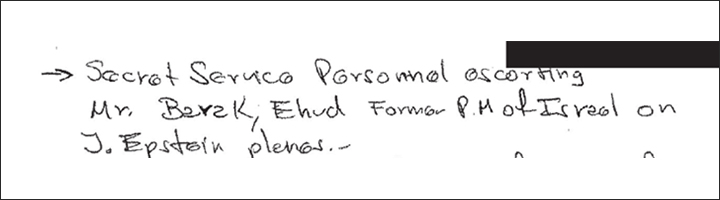 → Secret Service Personnel escorting
Mr. Barak, Ehud Former P.M of Israel on
J. Epstein planes.-